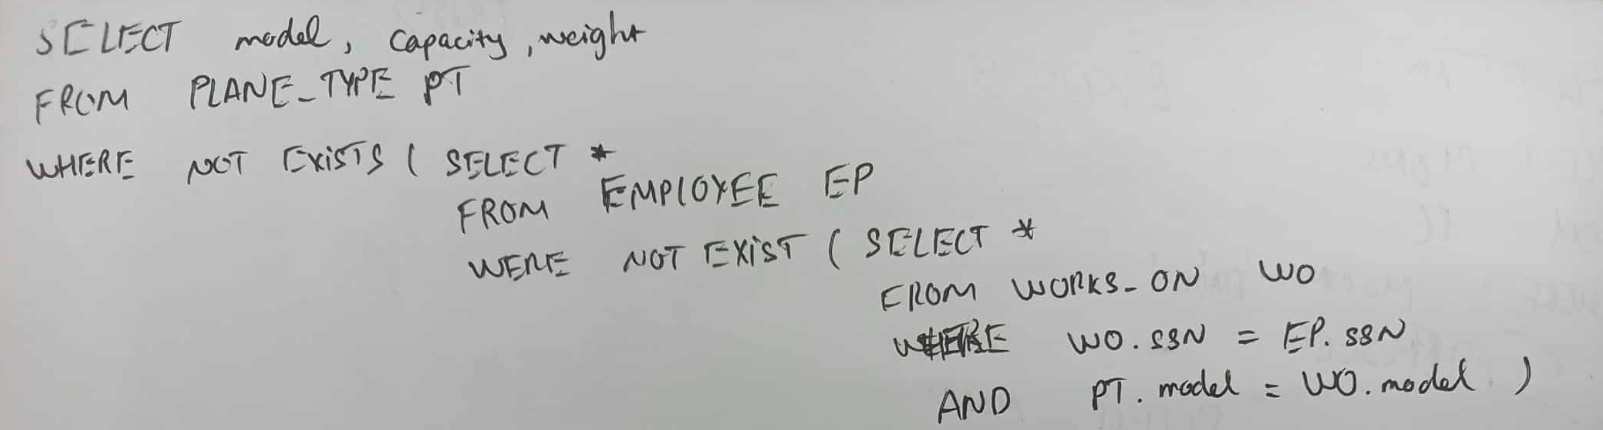 SELECT model, capacity, weight
FROM PLANE_TYPE PT
WHERE NOT EXISTS ( SELECT *
FROM EMPLOYEE EP
WERE NOT EXIST ( SELECT *
FROM WORKS_ON WO
WHERE WO.SSN = EP.SSN
AND PT.model = WO.model )